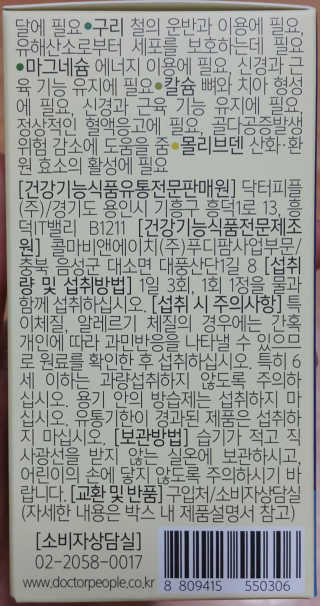 달에 필요 •구리 철의 운반과 이용에 필요,
유해산소로부터 세포를 보호하는데 필요
•마그네슘 에너지 이용에 필요, 신경과 근
육 기능 유지에 필요 •칼슘 뼈와 치아 형성
에 필요, 신경과 근육 기능 유지에 필요,
정상적인 혈액응고에 필요, 골다공증발생
위험 감소에 도움을 줌 •몰리브덴 산화·환
원 효소의 활성에 필요
[건강기능식품유통전문판매원] 닥터피플
(주)/경기도 용인시 기흥구 흥덕1로 13, 흥
덕IT밸리 B1211 [건강기능식품전문제조
원] 콜마비앤에이치(주)푸디팜사업부문/
충북 음성군 대소면 대풍산단1길 8 [섭취
량 및 섭취방법] 1일 3회, 1회 1정을 물과
함께 섭취하십시오. [섭취 시 주의사항] 특
이체질, 알레르기 체질의 경우에는 간혹
개인에 따라 과민반응을 나타낼 수 있으므
로 원료를 확인한 후 섭취하십시오. 특히 6
세 이하는 과량섭취하지 않도록 주의하
십시오. 용기 안의 방습제는 섭취하지 마
십시오. 유통기한이 경과된 제품은 섭취하
지 마십시오. [보관방법] 습기가 적고 직
사광선을 받지 않는 실온에 보관하시고,
어린이의 손에 닿지 않도록 주의하시기 바
랍니다. [교환 및 반품] 구입처/소비자상담실
(자세한 내용은 박스 내 제품설명서 참고)
[소비자상담실]
02-2058-0017
www.doctorpeople.co.kr
8 809415 550306